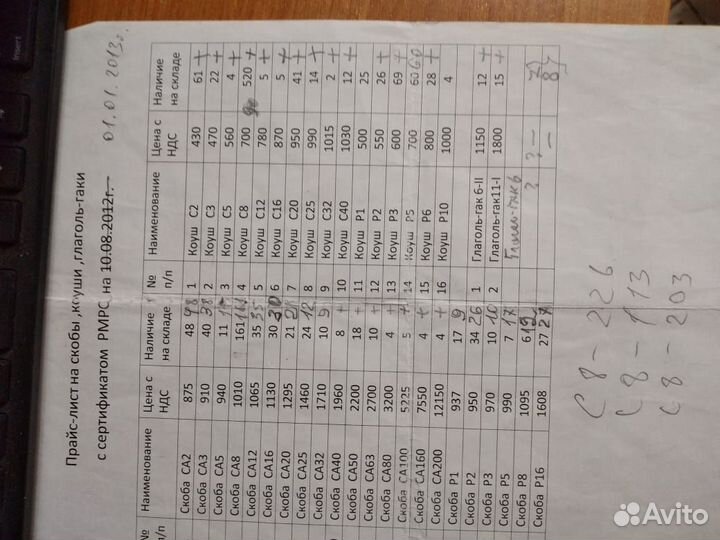 Прайс-лист на скобы ,коуши ,глаголь-гаки
с сертификатом РМРС на 10.08.2012г. 01.01.2013г.
№ п/п Наименование Цена с НДС Наличие на складе № п/п Наименование Цена с НДС Наличие на складе
Скоба СА2 875 48 1 Коуш С2 430 61 +
Скоба СА3 910 40 38 2 Коуш С3 470 22 +
Скоба СА5 940 11 3 Коуш С5 560 4 +
Скоба СА8 1010 161 4 Коуш С8 700 520 +
Скоба СА12 1065 35 35 5 Коуш С12 780 5 +
Скоба СА16 1130 30 30 6 Коуш С16 870 5 +
Скоба СА20 1295 21 7 Коуш С20 950 41 +
Скоба СА25 1460 24 12 8 Коуш С25 990 14 +
Скоба СА32 1710 10 9 9 Коуш С32 1015 2 +
Скоба СА40 1960 8 + 10 Коуш С40 1030 12 +
Скоба СА50 2200 18 + 11 Коуш Р1 500 25
Скоба СА63 2700 10 + 12 Коуш Р2 550 26 +
Скоба СА80 3200 4 + 13 Коуш Р3 600 69 +
Скоба СА100 5225 5 + 14 Коуш Р5 700 60 60
Скоба СА160 7550 4 + 15 Коуш Р6 800 28 +
Скоба СА200 12150 4 + 16 Коуш Р10 1000 4
Скоба Р1 937 17 9
Скоба Р2 950 34 26 1 Глаголь-гак 6-II 1150 12 +
Скоба Р3 970 10 10 2 Глаголь-гак11-I 1800 15 +
Скоба Р5 990 7 17
Скоба Р8 1095 6 12
Скоба Р16 1608 27 27
С 8 - 226
С 8 - 113
С 8 - 203
Insert
Avito